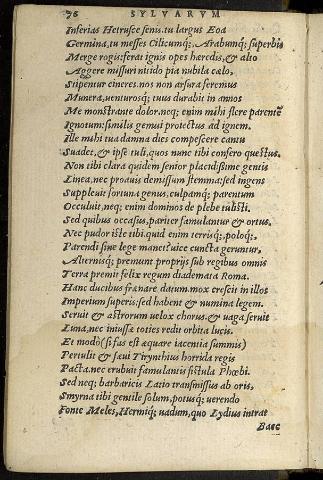 76 SYLVARVM
Inferias Hetrusce senis. tu largus Eoa
Germina, tu messes Cilicumq́;, Arabumq́; superbis
Merge rogis: ferat ignis opes hæredis, & alto
Aggere missuri nitido pia nubila cælo,
Stipentur cineres. nos non arsura feremus
Munera, venturosq́; tuus durabit in annos
Me monstrante dolor. neq; enim mihi flere parentẽ
Ignotum: similis gemui protectus ad ignem.
Ille mihi tua damna dies compescere cantu
Suadet, & ipse tuli, quos nunc tibi confero questus.
Non tibi clara quidem senior placidissime gentis
Linea, nec proauis demissum stemma: sed ingens
Suppleuit fortuna genus, culpamq́; parentum
Occuluit, neq; enim dominos de plebe tulisti.
Sed quibus occasus, pariter famulantur & ortus.
Nec pudor iste tibi. quid enim terrisq́;, poloq́;,
Parendi sine lege manet? vice cuncta geruntur,
Alternisq́; premunt proprijs sub regibus omnis
Terra premit felix regum diademata Roma.
Hanc ducibus frænare datum. mox crescit in illos
Imperium superis: sed habent & numina legem.
Seruit & astrorum uelox chorus. & uaga seruit
Luna, nec iniussæ toties redit orbita lucis.
Et modò (si fas est æquare iacentia summis)
Pertulit & sæui Tirynthius horrida regis
Pacta. nec erubuit famulantis fistula Phœbi.
Sed neq; barbaricis Latio transmissus ab oris,
Smyrna tibi gentile solum, potusq́; uerendo
Fonte Meles, Hermiq́; uadum, quo Lydius intrat
Bacc